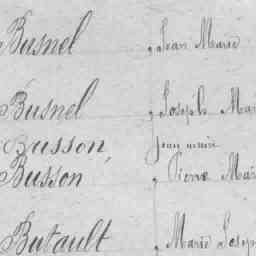 Busnel , Jean Marie
Busnel , Joseph Mar
Busson, Jean marie
Busson , Pierre Mar
Butault , Marie Josep